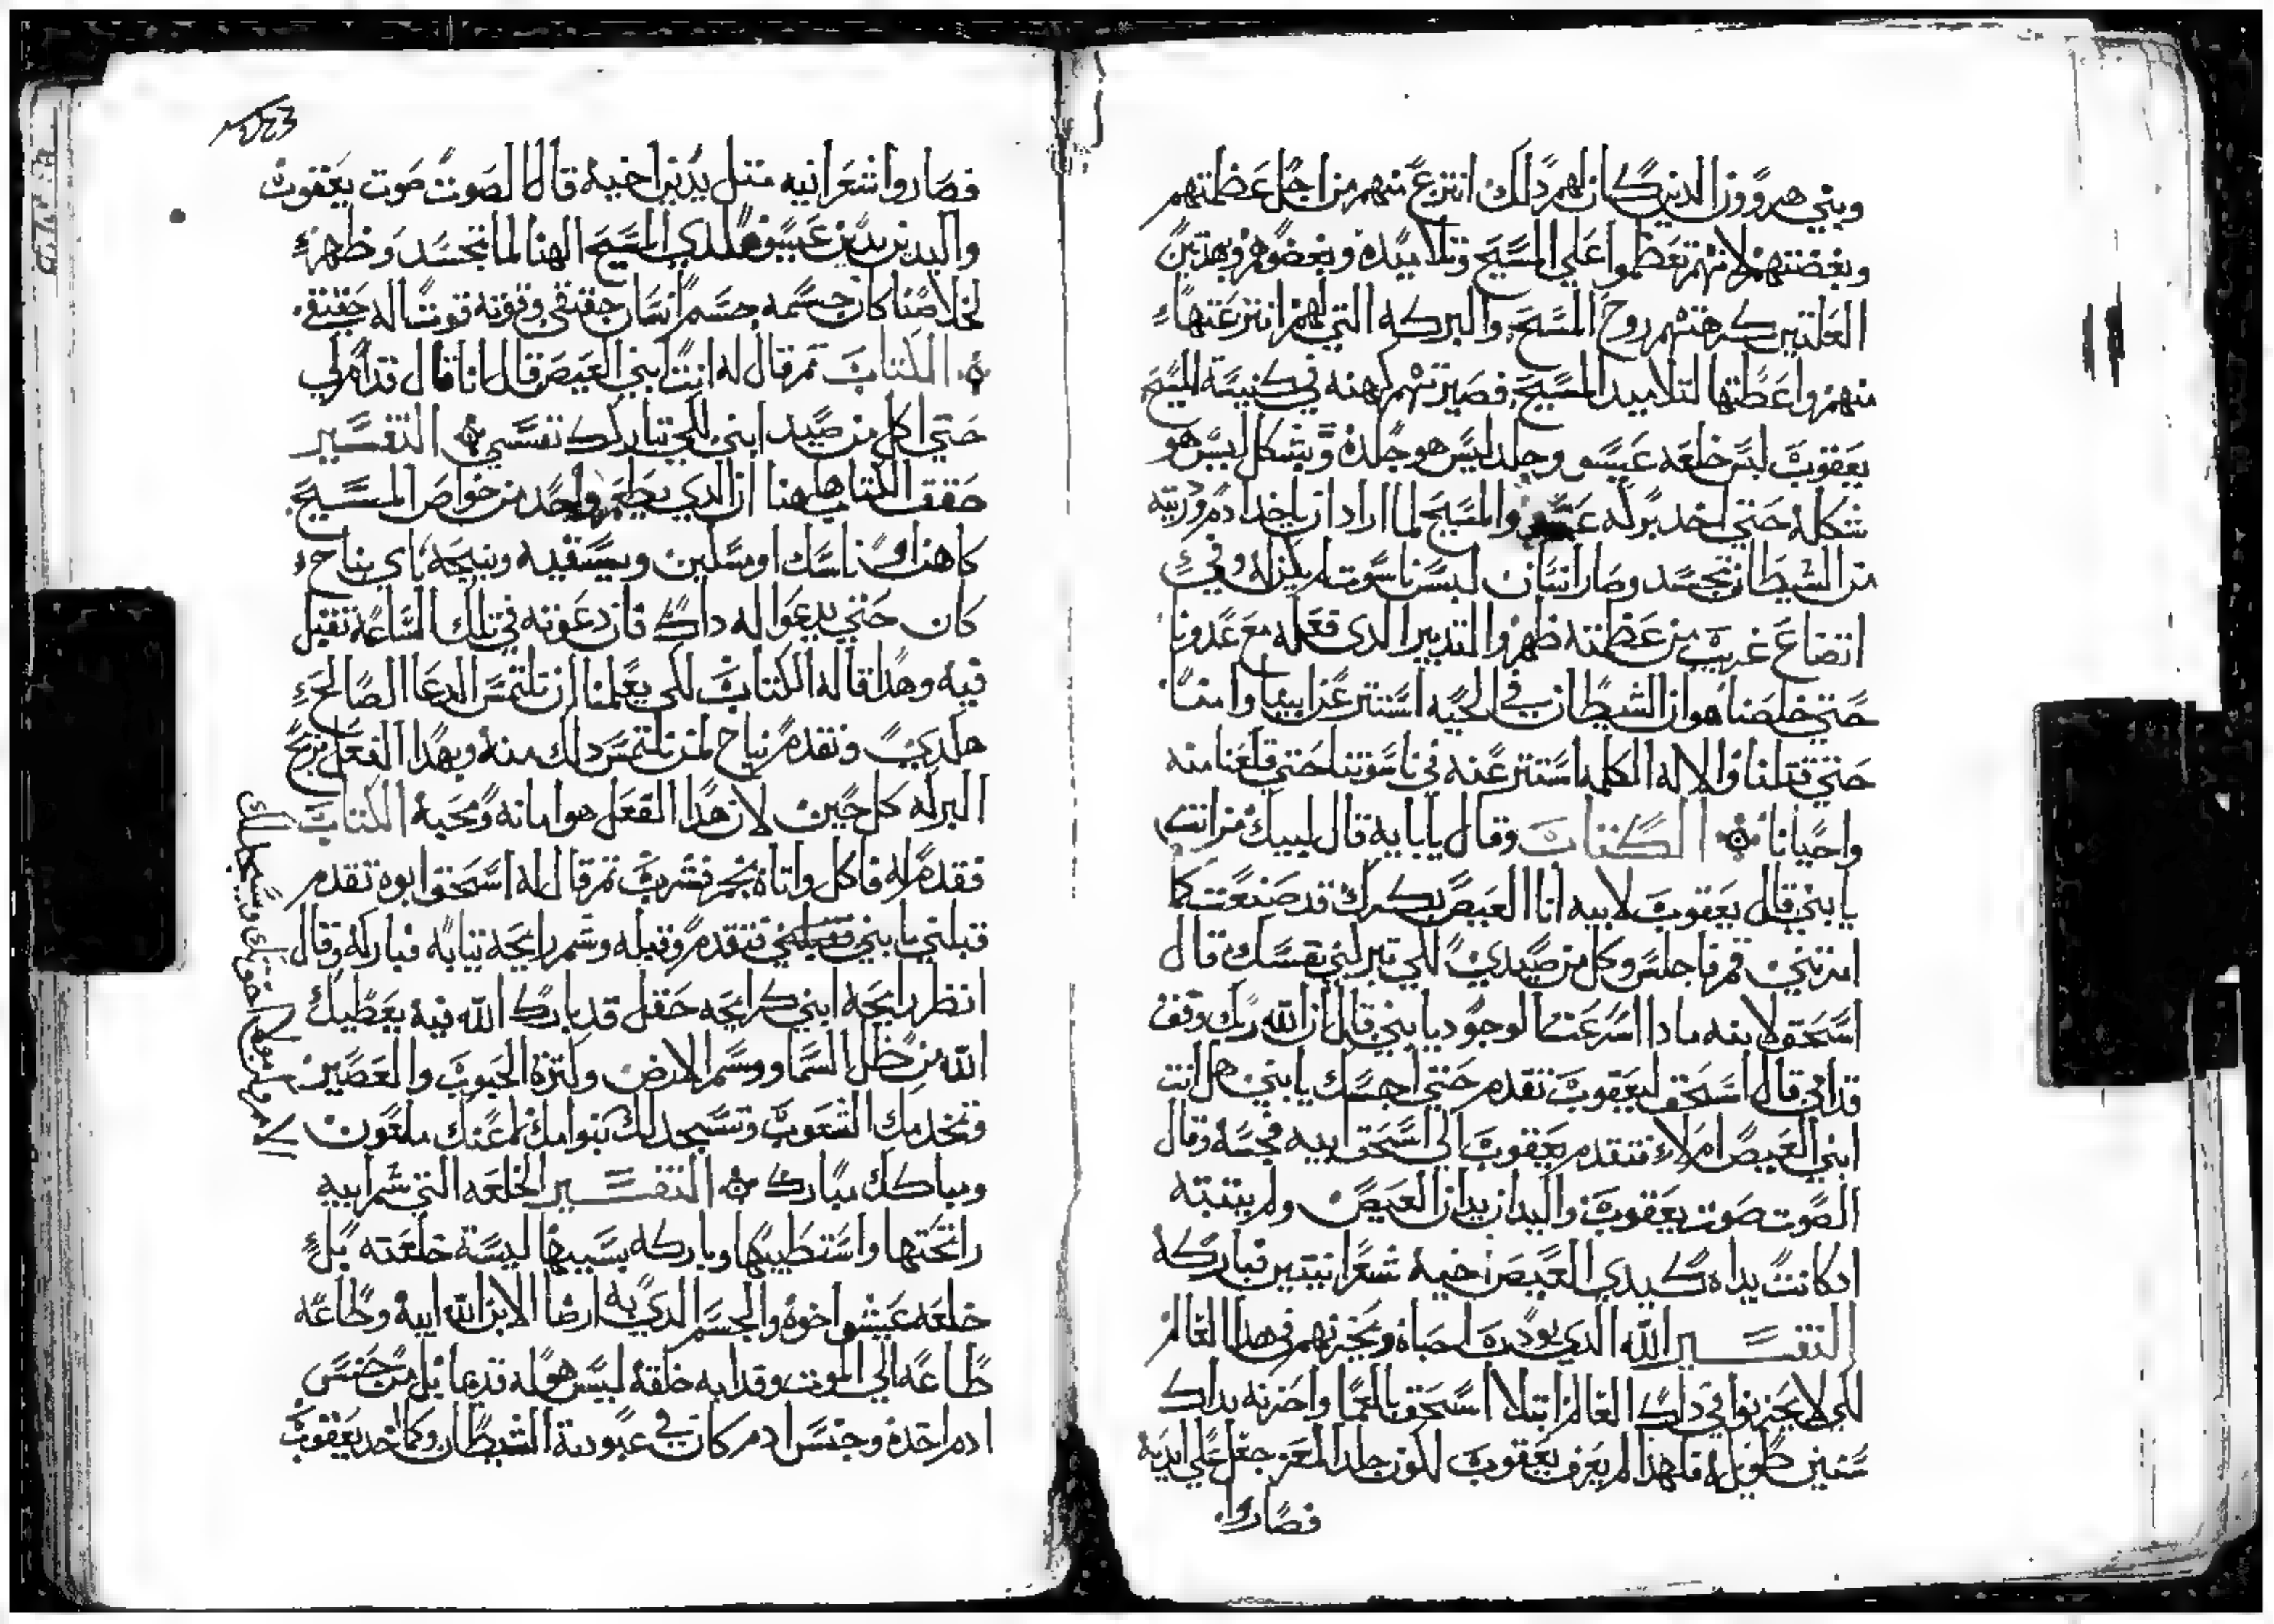 وبني هرون الدين كان لهم دلك انتزع منهم من اجل عظمتهم
وبغضتهم لانهم تعظموا علي المسيح وتلاميده وبغضوهم وبهدين
العلتين كرهتهم روح المسيح والبركه التي لهم انتزعتها
منهم واعطتها لتلاميد المسيح فصيرتهم كهنه في كنيسة المسيح
يعقوب لبس خلعه عيسو وجلد ليس هو جلده وبشكل ليس هو
شكله حتي اخد بركه عيسو والمسيح لما اراد ان ياخد ادم ودريته
من الشيطان تجسد وصار انسان لبس ناسوت لم يكن له وفي
اتضاع غريب من عظمته ظهر والتدبير الدي فعله مع عدونا
حتي خلصنا هو ان الشيطان في الحيه استتر عن ابينا وامنا
حتي قتلنا والاله الكلمه استتر عنه في ناسوتنا حتي قلعنا منه
واحيانا الكتاب وقال يا بايه قال لبيك من انت
يا بني قال يعقوب لابيه انا العيص بكرك قد صنعت كما
امرتني قم فاجلس وكل من صيدي لكي تبركني نفسك قال
اسحق لابنه مادا اسرعت الوجود يا بني قال ان الله ربك وفق
قدامي قال اسحق ليعقوب تقدم حتي اجسك يا بني هل انت
ابني العيص ام لا فتقدم يعقوب الي اسحق ابيه فجسه وقال
الصوت صوت يعقوب واليدان يدان العيص ولم يتبته
ادكانت يداه كيدي العيص اخيه شعرانيتين فباركه
التفسير الله الدي يودب احباه ويحزنهم في هدا العالم
لكي لا يحزنوا في دلك العالم ابتلا اسحق بالعما واحزنه بداك
سنين طويله فلهدا لم يعرف يعقوب لكون جلد المعز جعل علي ايديه
فصاروا
فصاروا شعرانيه متل يدين اخيه قال الصوت صوت يعقوب
واليدين يدين عيسو هكدي المسيح الهنا لما تجسد وظهر
لخلاصنا كان جسمه جسم انسان حقيقي وقوته قوت اله حقيقي
الكتاب تم قال له انت ابني العيص قال انا قال قدم لي
حتي اكل من صيد ابني لكي تباركك نفسي التفسير
حقق الكتاب هاهنا ان الدي يطعم واحد من خواص المسيح
كاهن او ناسك او مسكين ويسقيه وينيحه باي نياح
كان حتي يدعوا له داك فان دعوته في تلك الساعه تقبل
فيه وهدا قاله الكتاب لكي يعلمنا ان نلتمس الدعا الصالح
هكدي ونقدم نياح لمن نلتمس دلك منه وبهدا الفعل نربح
البركه كل حين لان هدا الفعل هو امانه ومحبه الكتاب
فقدم له فاكل واتاه بخمر فشرب تم قال له اسحق ابوه تقدم
قبلني يا بني فتقدم وقبله وشم رايحة تيابه فباركه وقال
انظر رايحة ابني كرايحه حقل قد بارك الله فيه يعطيك
الله من ظل السما ووسم الارض وكترة الحبوب والعصير
وتخدمك الشعوب وتسجد لك بنوا امك لاعنك ملعون
ومباركك مبارك التفسير الخلعه التي شم ابيه
رائحتها واستطيبها وباركه بسببها ليست خلعته بل
خلعه عيسو اخوه والجسم الدي به ارضا الابن الله ابيه وطاعه
طاعه الي الموت وفدا به خلقه ليس هو له قديما بل من جنس
ادم اخده وجنس ادم كان في عبودية الشيطان وكما اخد يعقوب